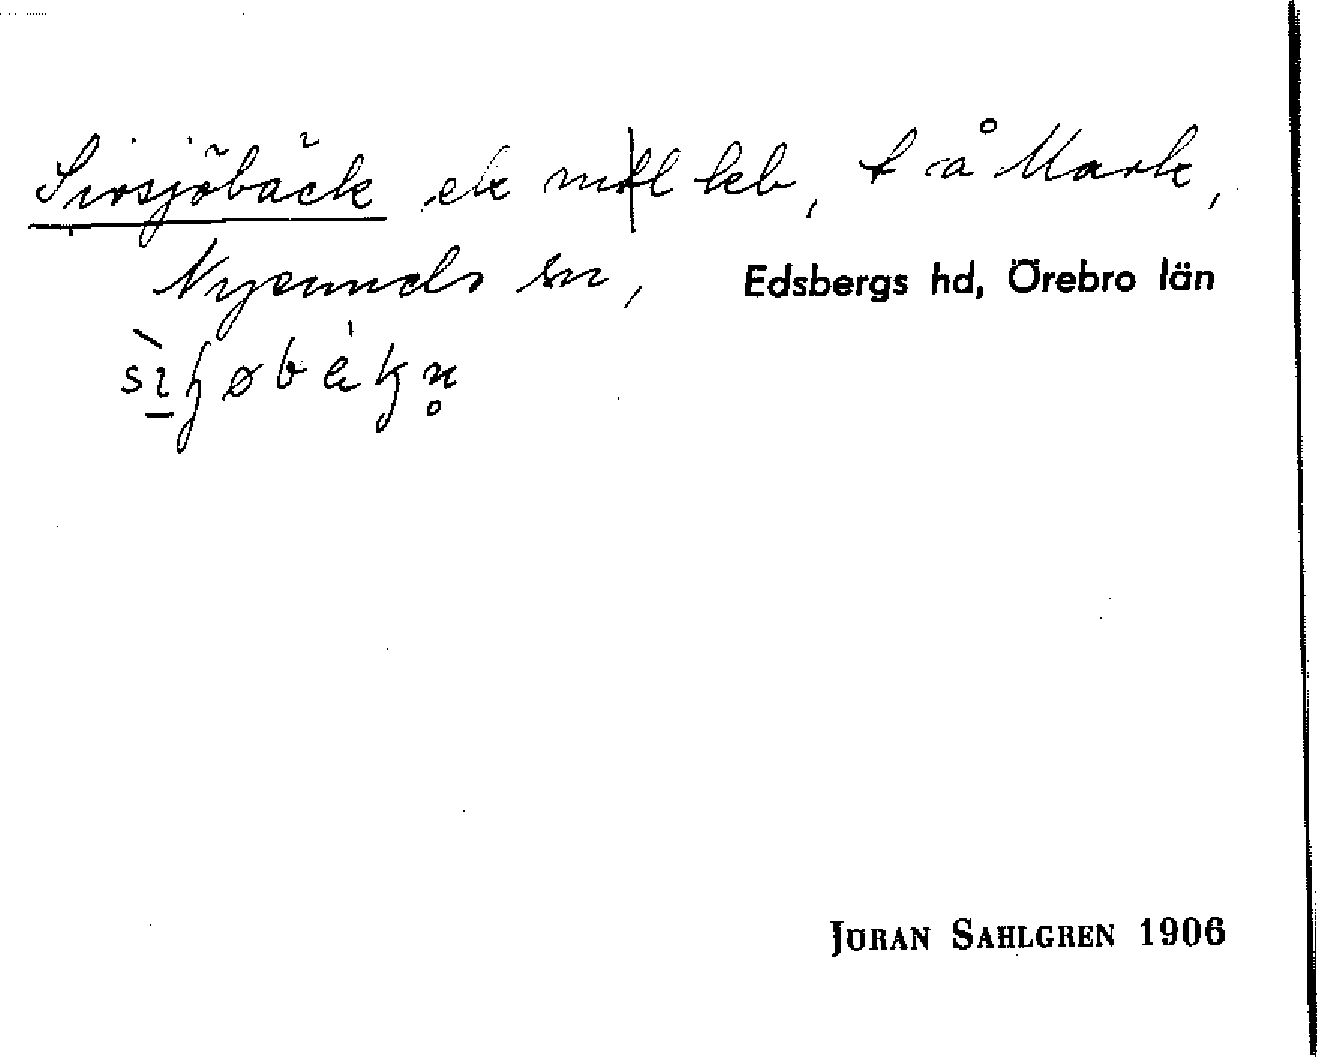 Sirsjöbäck ek mtl kb, t å Mark,
Nysunds sn, Edsbergs hd, Örebro län
JÖRAN SAHLGREN 1906